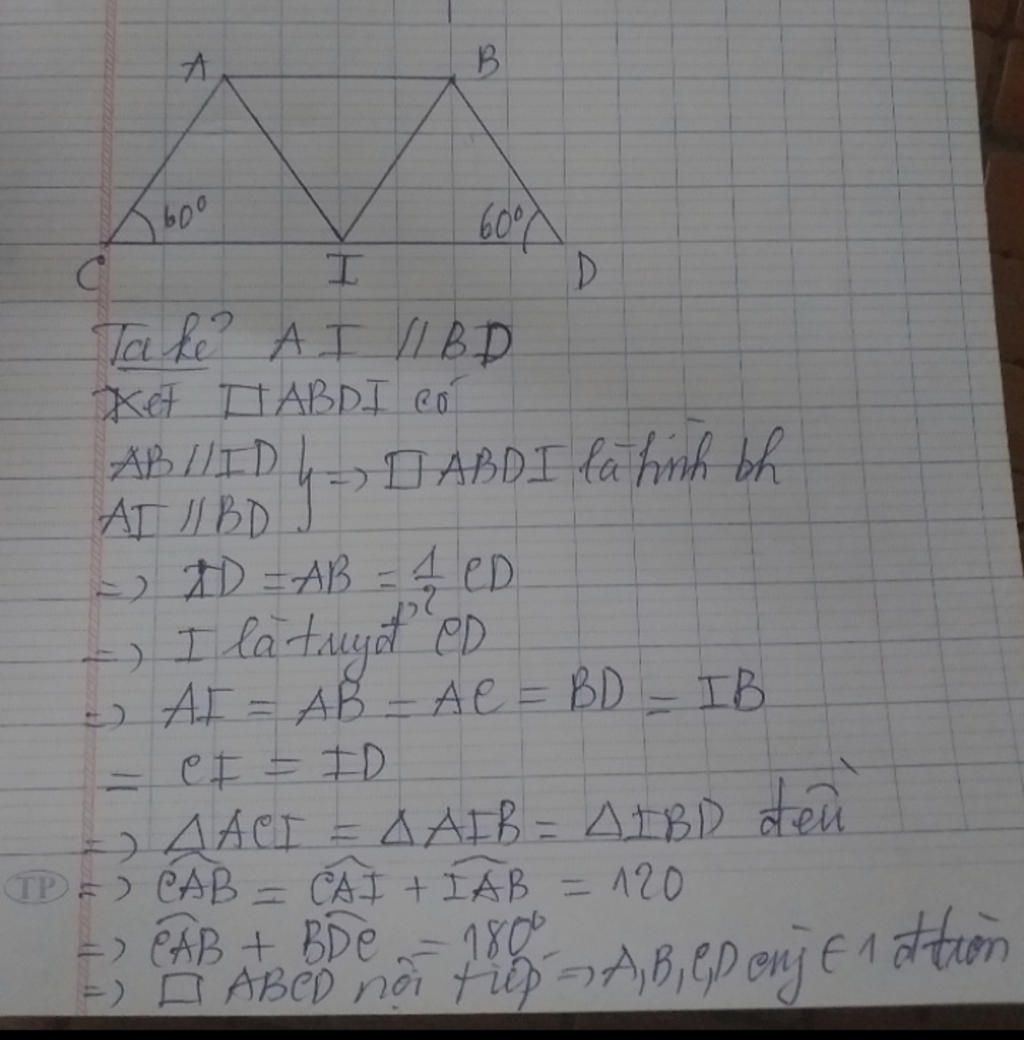 A B
60° 60°
C I D
Ta kẻ AI // BD
Xét □ABDI có
AB // ID } => □ABDI là hình bh
AI // BD
=> ID = AB = 1/2 CD
=> I là tuyđ CD
=> AI = AB = AC = BD = IB
= CI = ID
=> ΔACI = ΔAIB = ΔIBD đều
TP
=> CAB = CAI + IAB = 120
=> CAB + BDC = 180°
=> □ ABCD nội tiếp => A, B, C, D cùng ∈ 1 đtròn